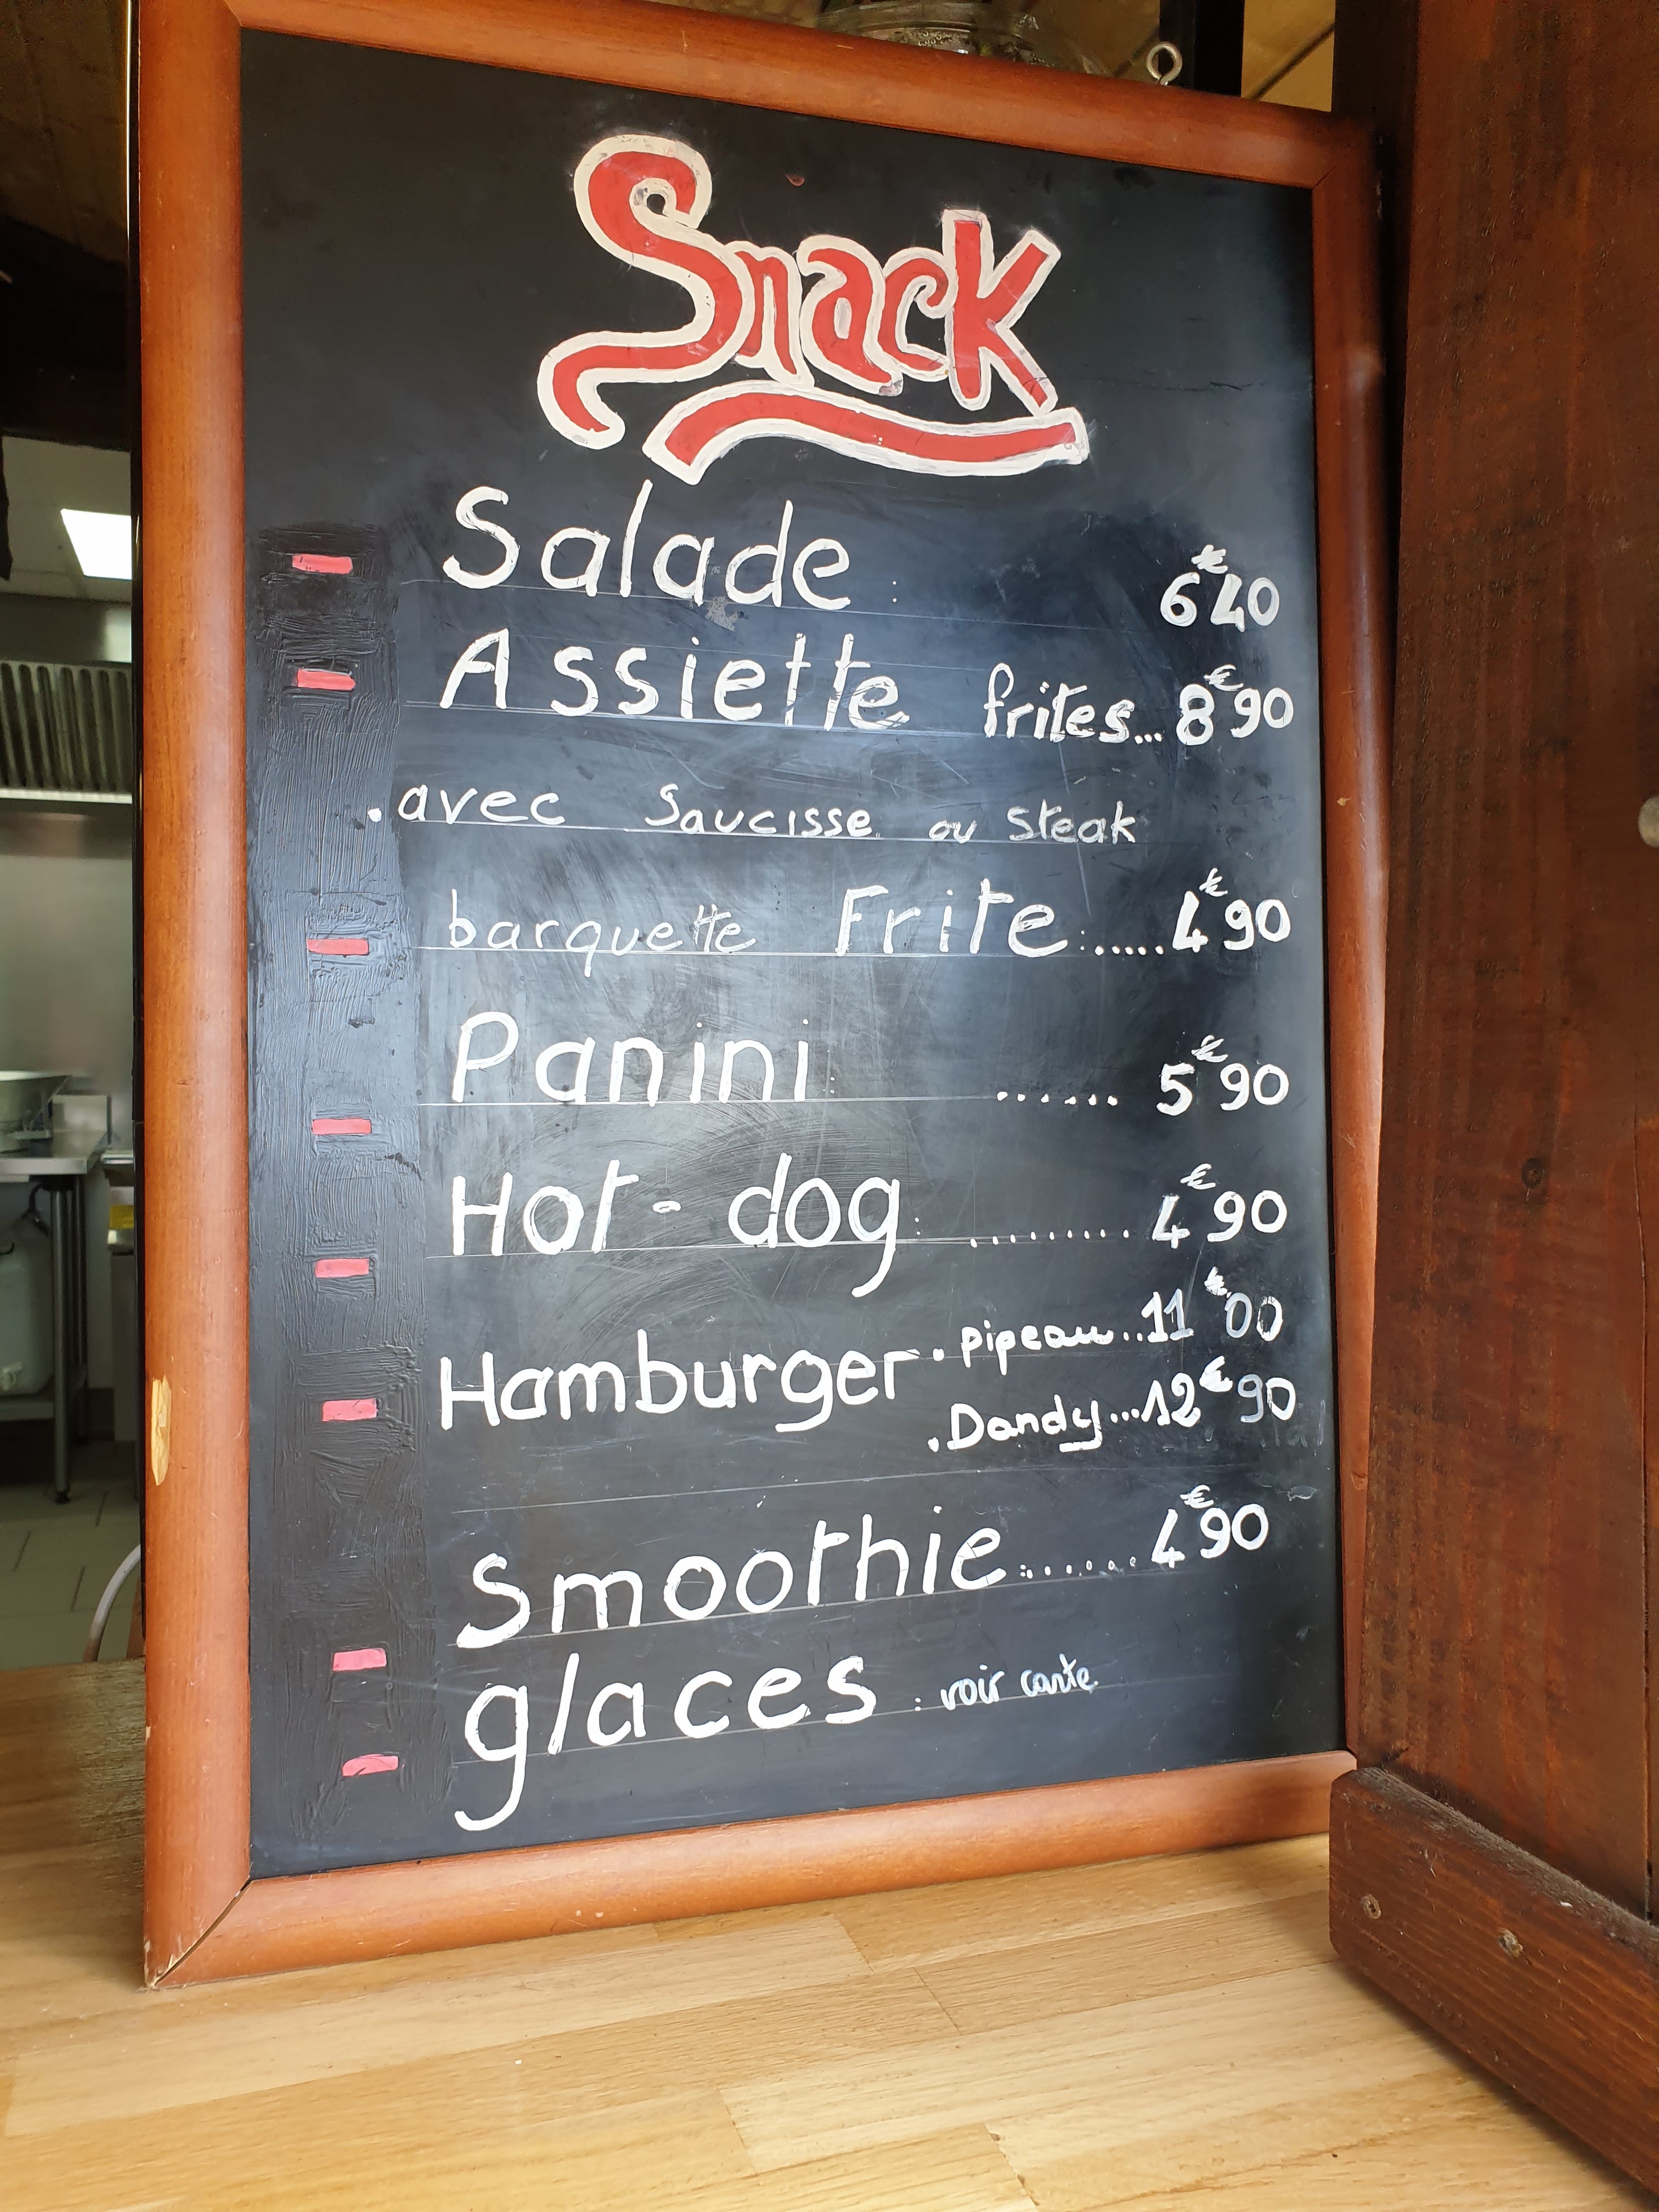 Snack
Salade : 6€40
Assiette frites... 8€90
. avec Saucisse ou Steak
barquette Frite :..... 4€90
Panini : ...... 5€90
Hot-dog : ......... 4€90
Hamburger . pipeau.. 11€00
. Dandy... 12€90
Smoothie :...... 4€90
glaces : voir carte